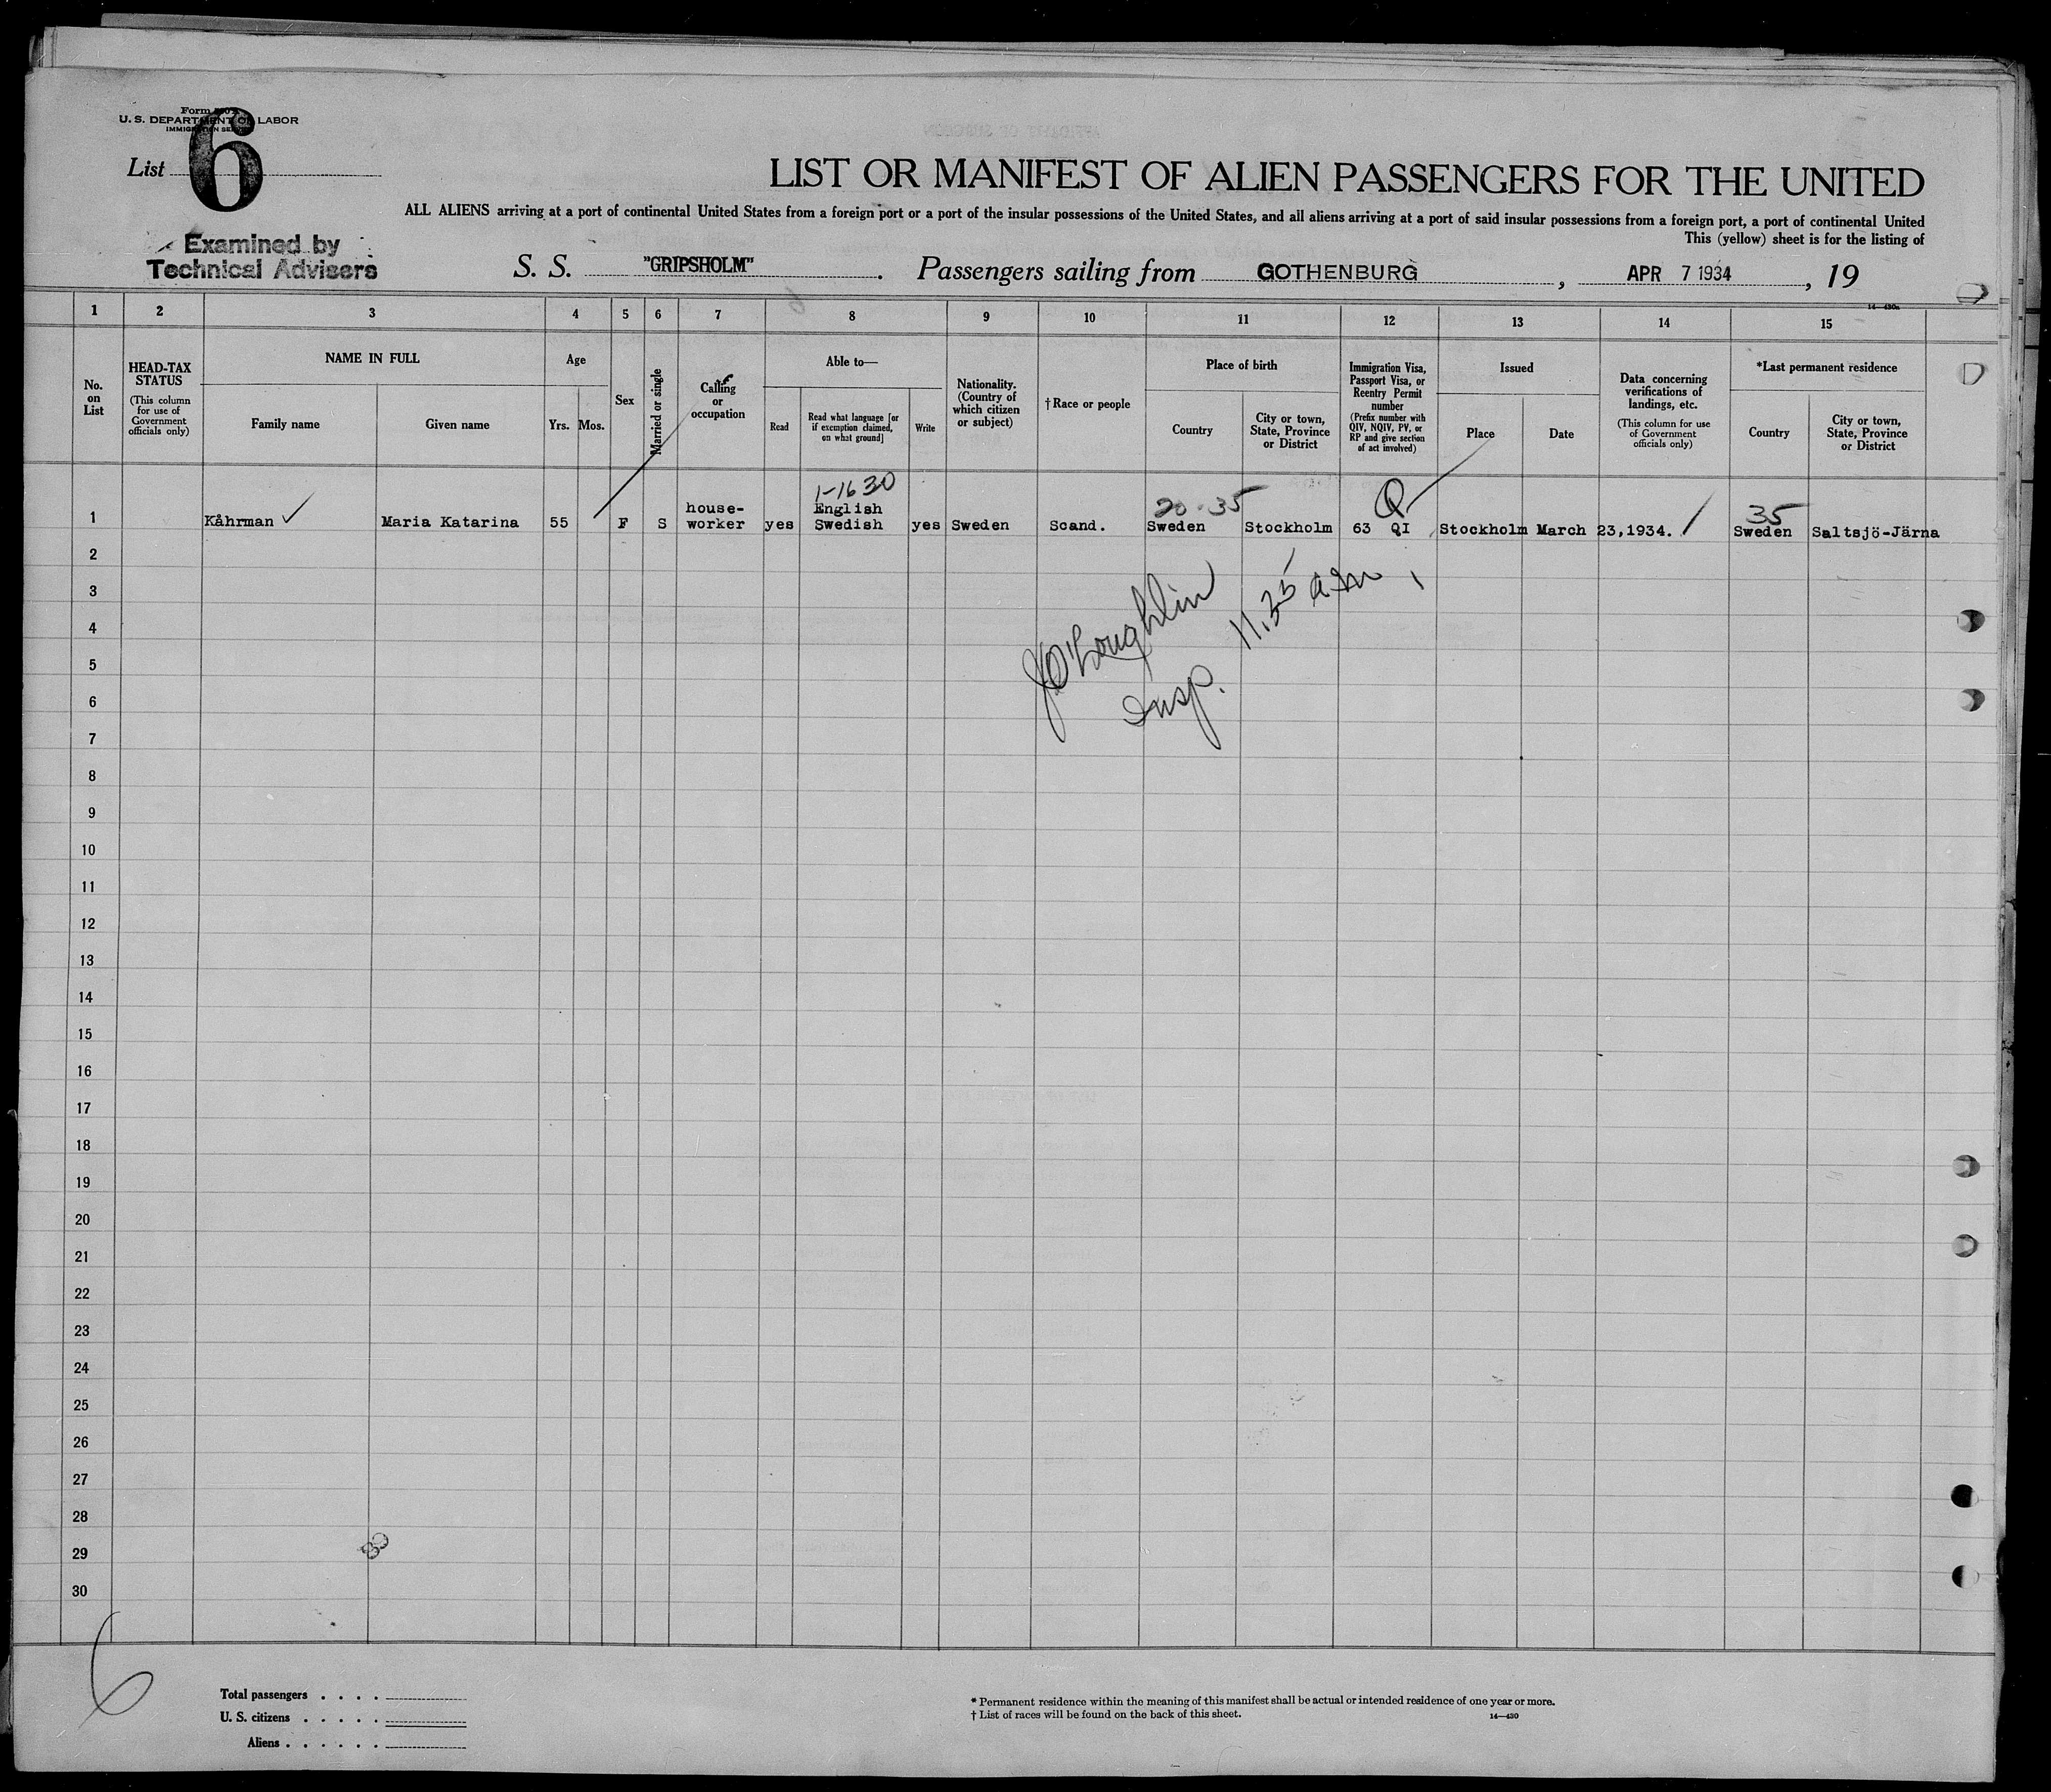 U. S. DEPARTMENT OF LABOR
List 6
LIST OR MANIFEST OF ALIEN PASSENGERS FOR THE UNITED
ALL ALIENS arriving at a port of continental United States from a foreign port or a port of the insular possessions of the United States, and all aliens arriving at a port of said insular possessions from a foreign port, a port of continental United
This (yellow) sheet is for the listing of
Examined by
Technical Advisers
S. S. "GRIPSHOLM". Passengers sailing from GOTHENBURG, APR 7 1934, 19
14—430a
1 2 3 4 5 6 7 8 9 10 11 12 13 14 15
No. on List
HEAD-TAX STATUS
(This column for use of Government officials only)
NAME IN FULL
Family name
Given name
Age
Yrs. Mos.
Sex
Married or single
Calling or occupation
Able to—
Read
Read what language [or if exemption claimed, on what ground]
Write
Nationality. (Country of which citizen or subject)
†Race or people
Place of birth
Country
City or town, State, Province or District
Immigration Visa, Passport Visa, or Reentry Permit number
(Prefix number with QIV, NQIV, PV, or RP and give section of act involved)
Issued
Place
Date
Data concerning verifications of landings, etc.
(This column for use of Government officials only)
*Last permanent residence
Country
City or town, State, Province or District
1-16 30
20-35
Q
35
1 Kåhrman Maria Katarina 55 F S house-worker yes English Swedish yes Sweden Scand. Sweden Stockholm 63 QI Stockholm March 23,1934. Sweden Saltsjö-Järna
JO'Loughlin
Insp.
11.35 am
2
3
4
5
6
7
8
9
10
11
12
13
14
15
16
17
18
19
20
21
22
23
24
25
26
27
28
29
30
6
Total passengers . . . .
U. S. citizens . . . . .
Aliens . . . . . .
* Permanent residence within the meaning of this manifest shall be actual or intended residence of one year or more.
† List of races will be found on the back of this sheet.
14—430